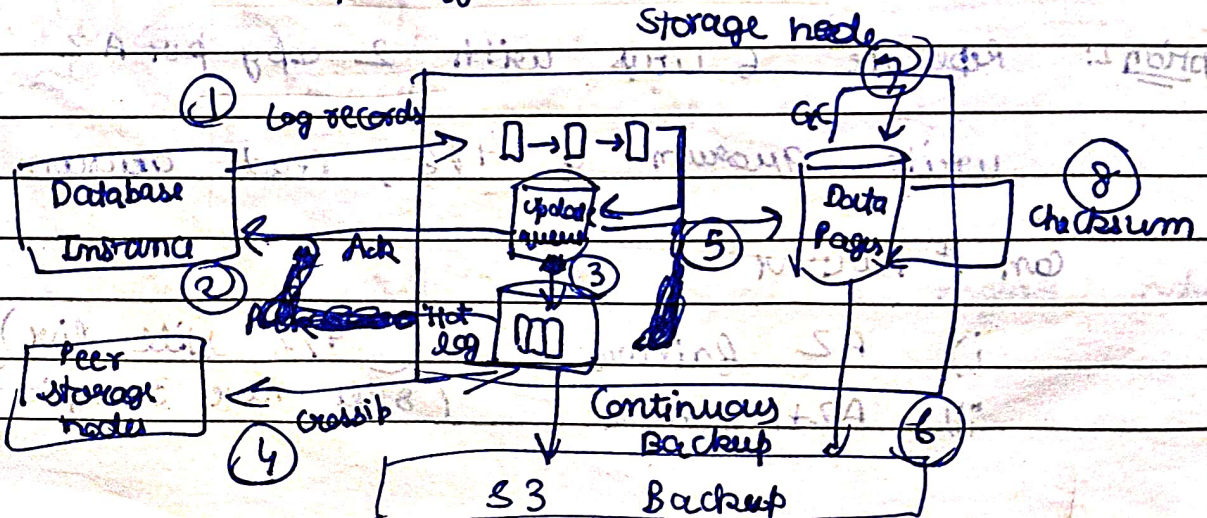 Storage node
7
1
Log records
GC
Database
Instance
Update
queue
Data
Pages
8
Checksum
Ack
2
3
5
Hot
log
Peer
storage
nodes
Gossip
4
Continuous
Backup
6
S3 Backup